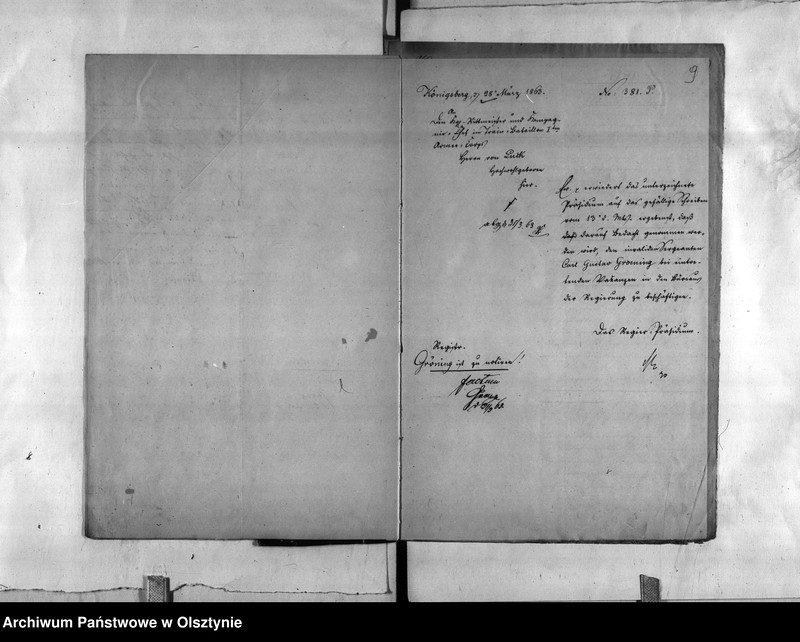 9
Königsberg, d 28t März 1863.
No. 381. P.
An
den Kgl. Rittmeister und Kompag-
nie-Chef im Train-Bataillon 1ten
Armee-Corps
Herrn von
Hochwohlgeboren
hier.
abges 31/3. 63
Ew. erwiedert das unterzeichnete
Präsidium auf das gefällige Schreiben
vom 13t d. Mts. ergebenst, daß
darauf Bedacht genommen wer-
den wird, den invaliden Sergeanten
Carl Gustav Groening bei eintre-
tenden Vakanzen in den Büreaus
der Regierung zu beschäftigen.
Das Regier. Präsidium.
Registr.
Gröning ist zu notiren!
factum
Archiwum Państwowe w Olsztynie